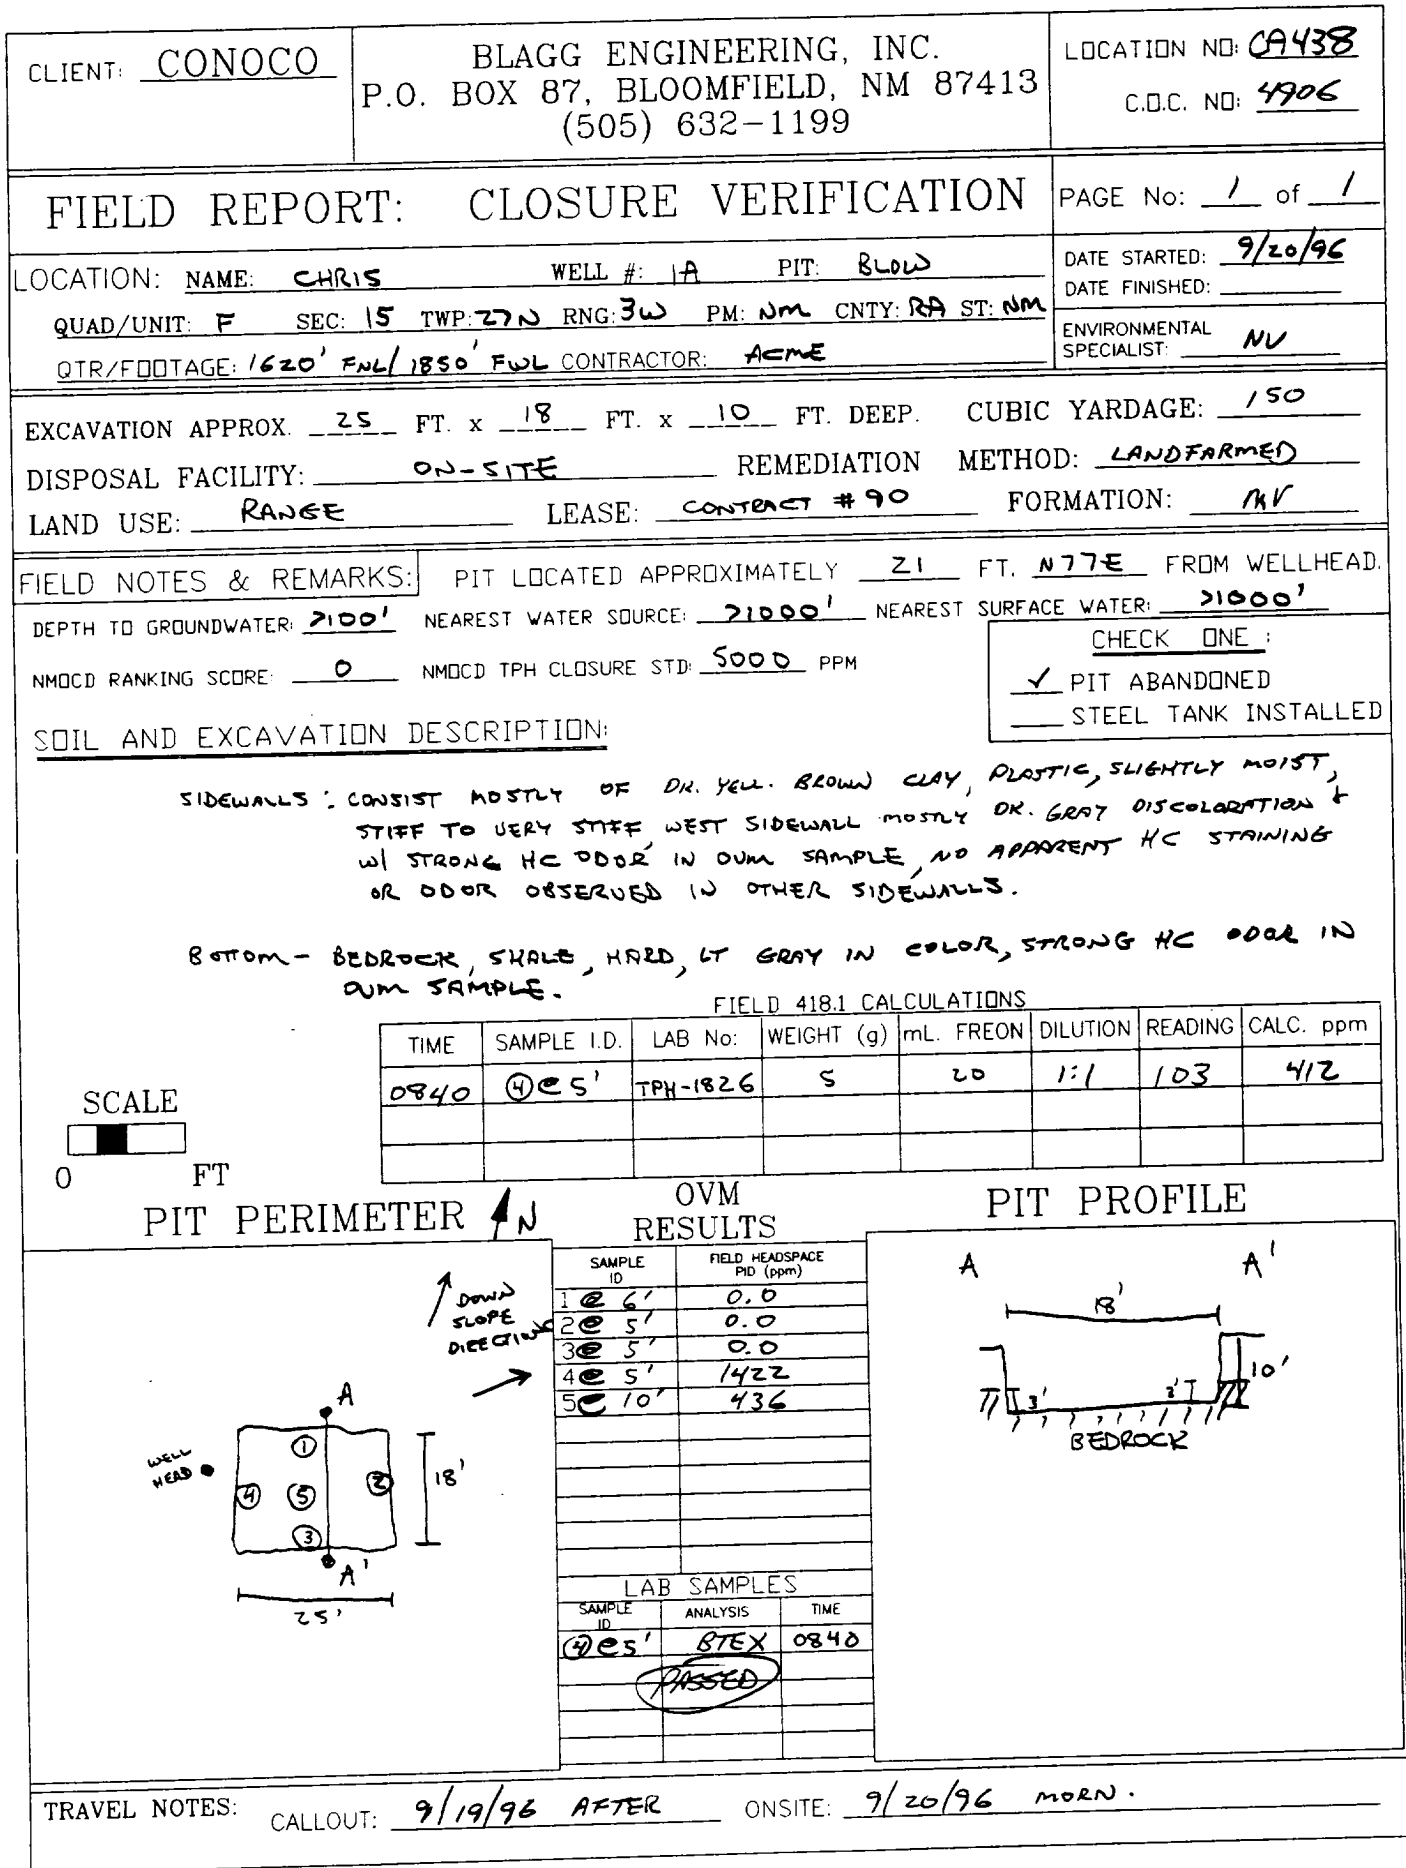 CLIENT: CONOCO
BLAGG ENGINEERING, INC.
P.O. BOX 87, BLOOMFIELD, NM 87413
(505) 632-1199
LOCATION NO: CA438
C.O.C. NO: 4906
FIELD REPORT: CLOSURE VERIFICATION
PAGE No: 1 of 1
LOCATION: NAME: CHRIS WELL #: 1A PIT: BLOW
QUAD/UNIT: F SEC: 15 TWP: 27N RNG: 3W PM: NM CNTY: RA ST: NM
QTR/FOOTAGE: 1620' FNL/ 1850' FWL CONTRACTOR: ACME
DATE STARTED: 9/20/96
DATE FINISHED:
ENVIRONMENTAL
SPECIALIST: NV
EXCAVATION APPROX. 25 FT. x 18 FT. x 10 FT. DEEP. CUBIC YARDAGE: 150
DISPOSAL FACILITY: ON-SITE REMEDIATION METHOD: LANDFARMED
LAND USE: RANGE LEASE: CONTRACT #90 FORMATION: MV
FIELD NOTES & REMARKS: PIT LOCATED APPROXIMATELY 21 FT. N77E FROM WELLHEAD.
DEPTH TO GROUNDWATER: >100' NEAREST WATER SOURCE: >1000' NEAREST SURFACE WATER: >1000'
NMOCD RANKING SCORE: 0 NMOCD TPH CLOSURE STD: 5000 PPM
CHECK ONE :
✓ PIT ABANDONED
STEEL TANK INSTALLED
SOIL AND EXCAVATION DESCRIPTION:
SIDEWALLS : CONSIST MOSTLY OF DK. YELL. BROWN CLAY, PLASTIC, SLIGHTLY MOIST,
STIFF TO VERY STIFF, WEST SIDEWALL MOSTLY DK. GRAY DISCOLORATION &
W/ STRONG HC ODOR IN OVM SAMPLE, NO APPARENT HC STAINING
OR ODOR OBSERVED IN OTHER SIDEWALLS.
BOTTOM - BEDROCK, SHALE, HARD, LT GRAY IN COLOR, STRONG HC ODOR IN
OVM SAMPLE.
FIELD 418.1 CALCULATIONS
TIME SAMPLE I.D. LAB No: WEIGHT (g) mL. FREON DILUTION READING CALC. ppm
0840 ④ @ 5' TPH-1826 5 20 1:1 103 412
SCALE
0 FT
PIT PERIMETER N
DOWN
SLOPE
DIRECTION
A
WELL
HEAD
①
②
④
⑤
③
18'
A'
25'
OVM
RESULTS
SAMPLE ID FIELD HEADSPACE PID (ppm)
1 @ 6' 0.0
2 @ 5' 0.0
3 @ 5' 0.0
4 @ 5' 1422
5 @ 10' 436
LAB SAMPLES
SAMPLE ID ANALYSIS TIME
④ @ 5' BTEX 0840
PASSED
PIT PROFILE
A A'
18'
10'
3' 3'
BEDROCK
TRAVEL NOTES: CALLOUT: 9/19/96 AFTER ONSITE: 9/20/96 MORN.